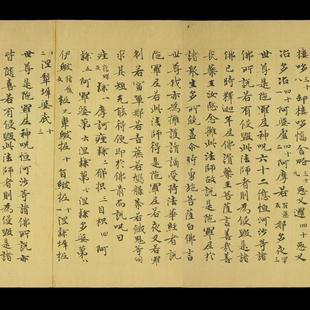 樓哆 卸樓哆憍舍略 惡叉邏 惡叉
冶多冶 阿婆盧 阿摩若 那多夜
世尊是陀羅尼神呪六十二億恒河沙等諸
佛所說若有侵毀此法師者則為侵毀是諸
佛已時釋迦牟尼佛讚藥王菩薩言善哉善
哉藥王汝愍念擁護此法師故說是陀羅尼於
諸眾生多所饒益爾時勇施菩薩白佛言
世尊我亦為擁護讀誦受持法華經者說
陀羅尼若此法師得是陀羅尼若夜叉若羅
剎若富單那若吉蔗若鳩槃荼若餓鬼等伺
求其短无能得便即於佛前而說呪曰
痤隸一 摩訶痤隸二 郁枳三 目枳四 阿
隸五 阿羅婆第六 涅隸第七 涅隸多婆第八
伊緻柅九 韋緻柅十 旨緻柅十一 涅隸墀柅
十二 涅犁墀婆底十三
世尊是陀羅尼神呪恒河沙等諸佛所說亦
皆隨喜若有侵毀此法師者則為侵毀是諸